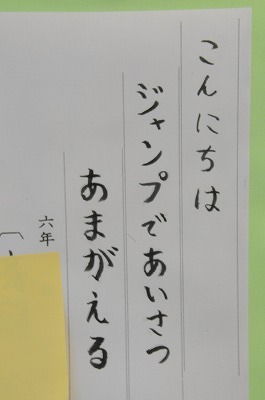 こんにちは
ジャンプであいさつ
あまがえる
六年